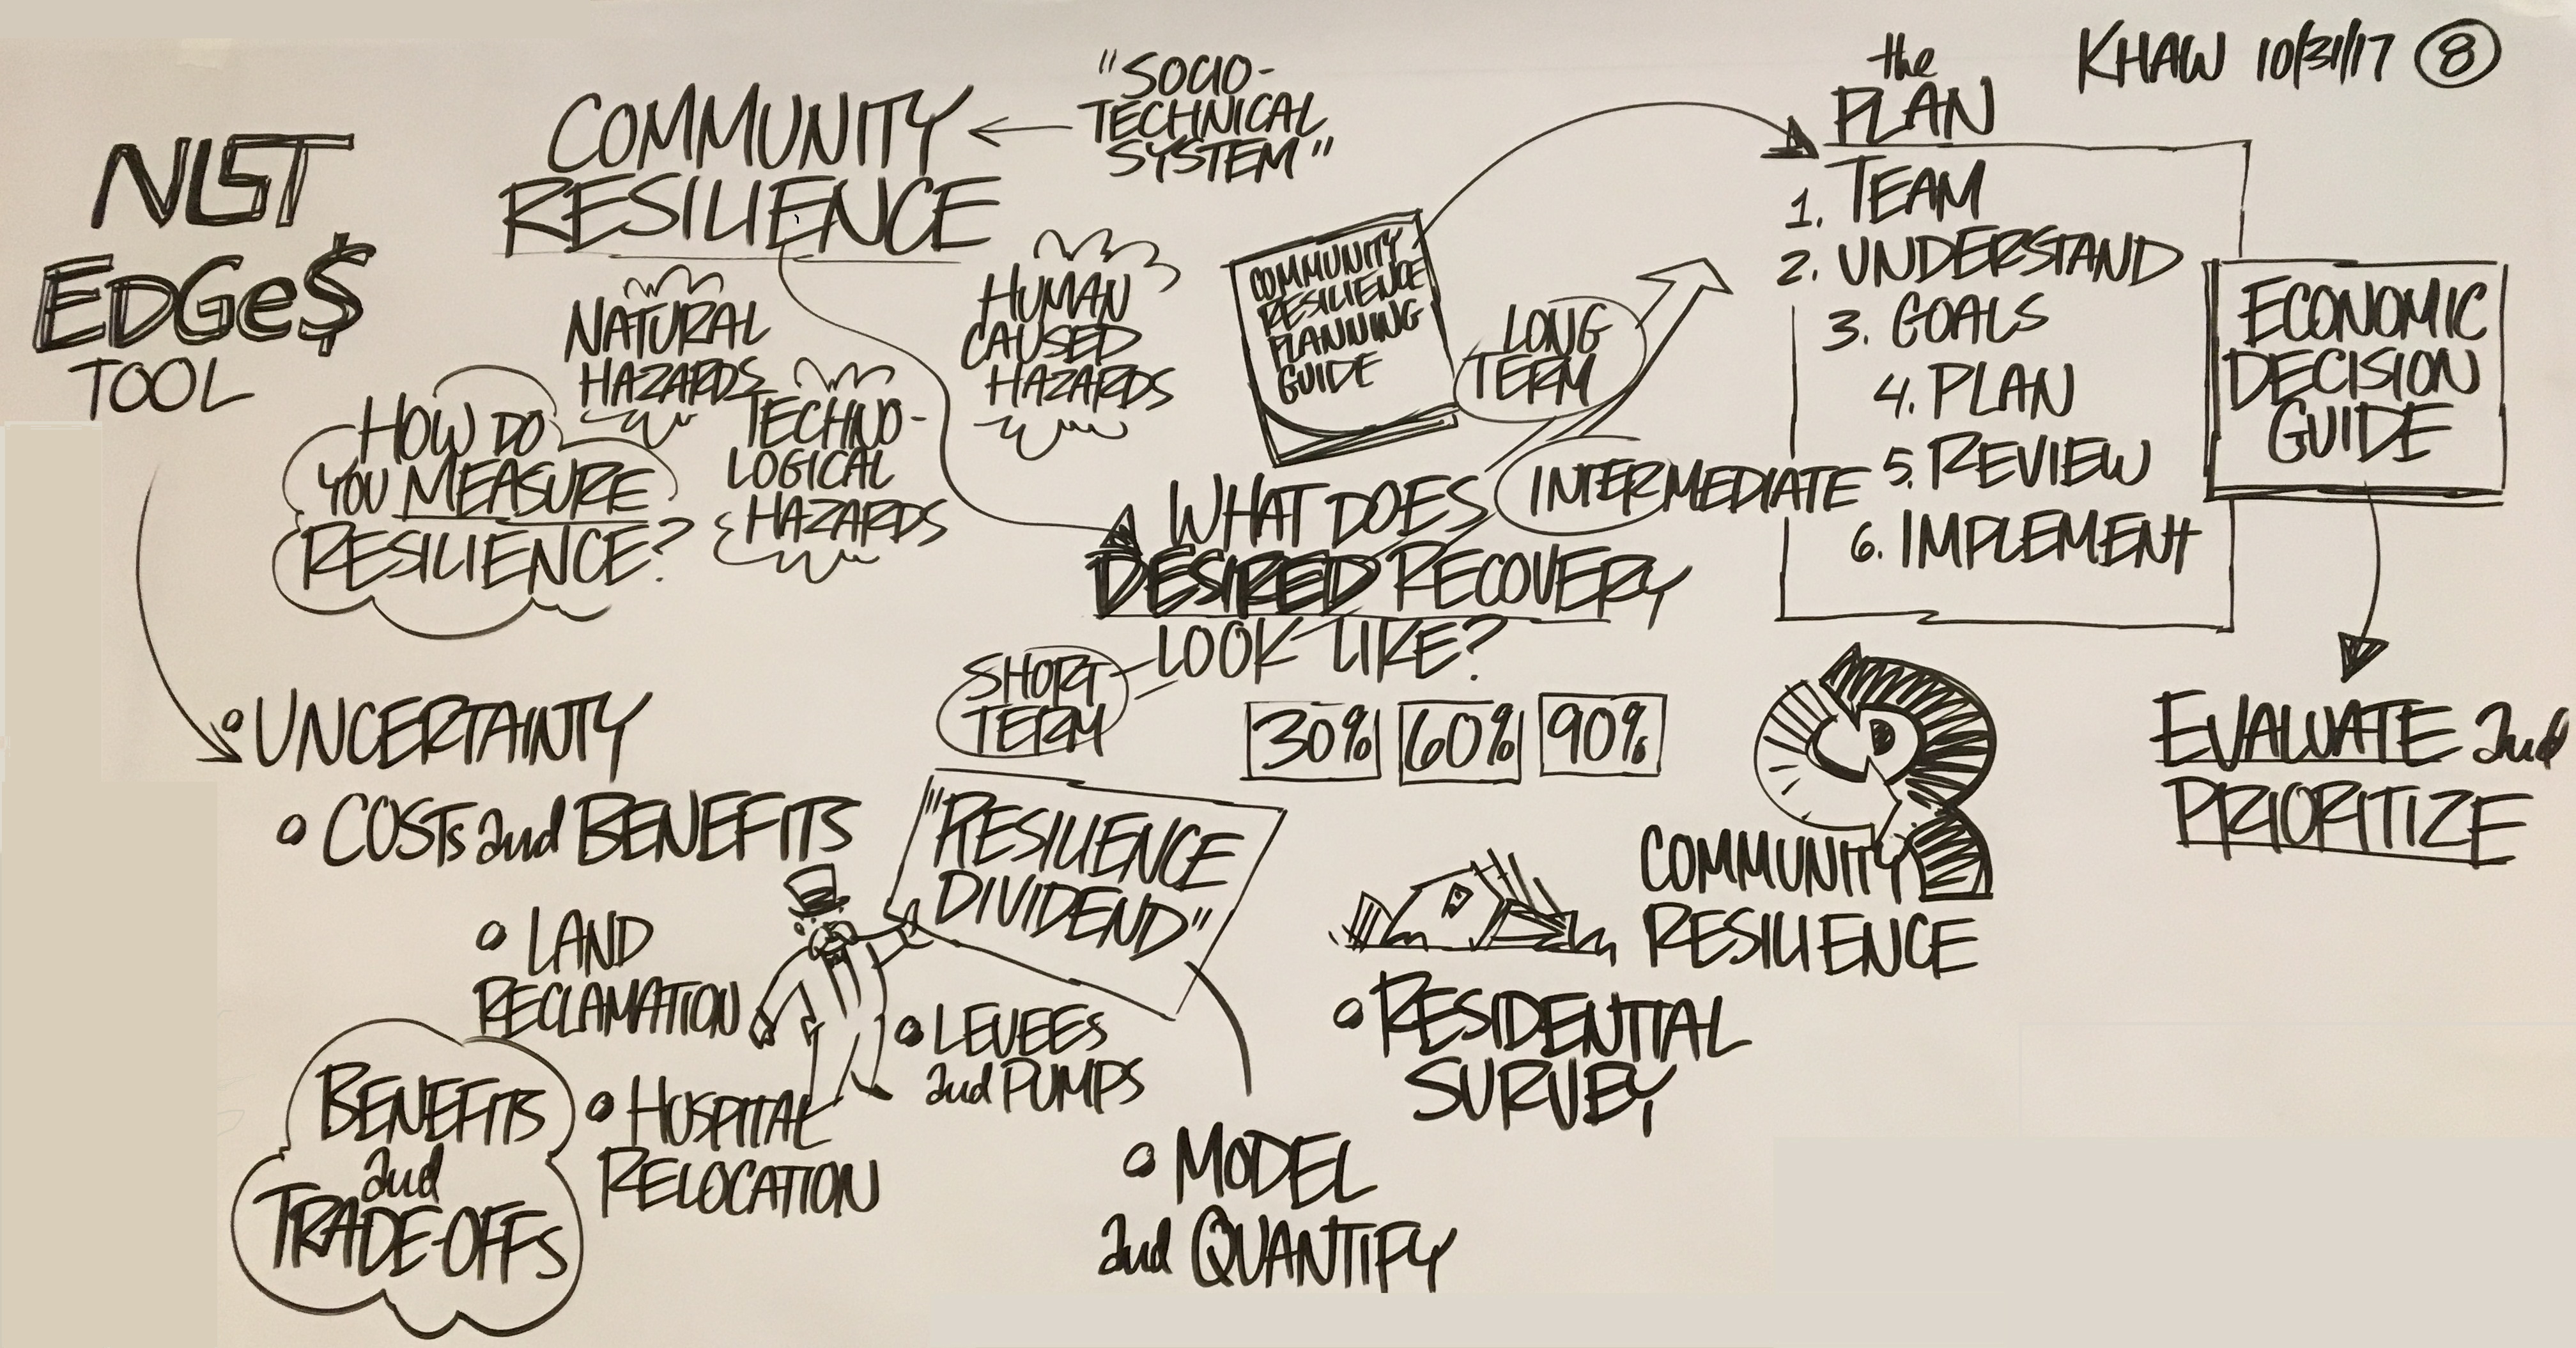 KHAW 10/31/17 8
NIST
EDGe$
TOOL
COMMUNITY
RESILIENCE
"SOCIO-
TECHNICAL
SYSTEM"
NATURAL
HAZARDS
TECHNO-
LOGICAL
HAZARDS
HUMAN
CAUSED
HAZARDS
HOW DO
YOU MEASURE
RESILIENCE?
COMMUNITY
RESILIENCE
PLANNING
GUIDE
the
PLAN
1. TEAM
2. UNDERSTAND
3. GOALS
4. PLAN
5. REVIEW
6. IMPLEMENT
ECONOMIC
DECISION
GUIDE
EVALUATE and
PRIORITIZE
LONG
TERM
INTERMEDIATE
WHAT DOES
DESIRED RECOVERY
LOOK LIKE?
SHORT
TERM
30% 60% 90%
• UNCERTAINTY
• COSTs and BENEFITS
• LAND
RECLAMATION
"RESILIENCE
DIVIDEND"
• LEVEEs
and PUMPS
• HOSPITAL
RELOCATION
BENEFITS
and
TRADE-OFFs
COMMUNITY
RESILIENCE
• RESIDENTIAL
SURVEY
• MODEL
and QUANTIFY